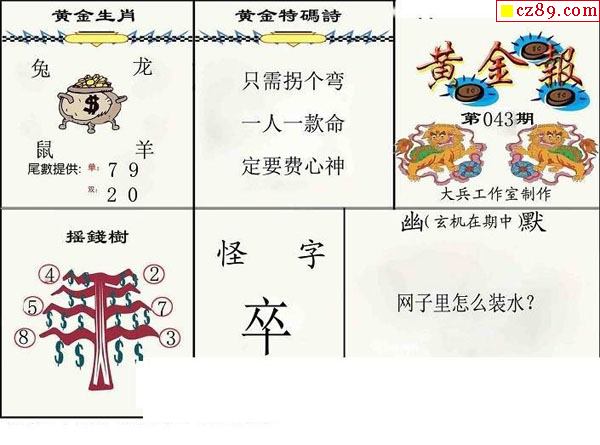 cz89.com
黄金生肖
兔 龙
$
鼠 羊
尾數提供: 单: 7 9
双: 2 0
黄金特碼詩
只需拐个弯
一人一款命
定要费心神
黄金報
第043期
大兵工作室制作
摇錢樹
④ ②
⑤ ⑦
⑧ ③
怪 字
卒
幽(玄机在期中)默
网子里怎么装水？